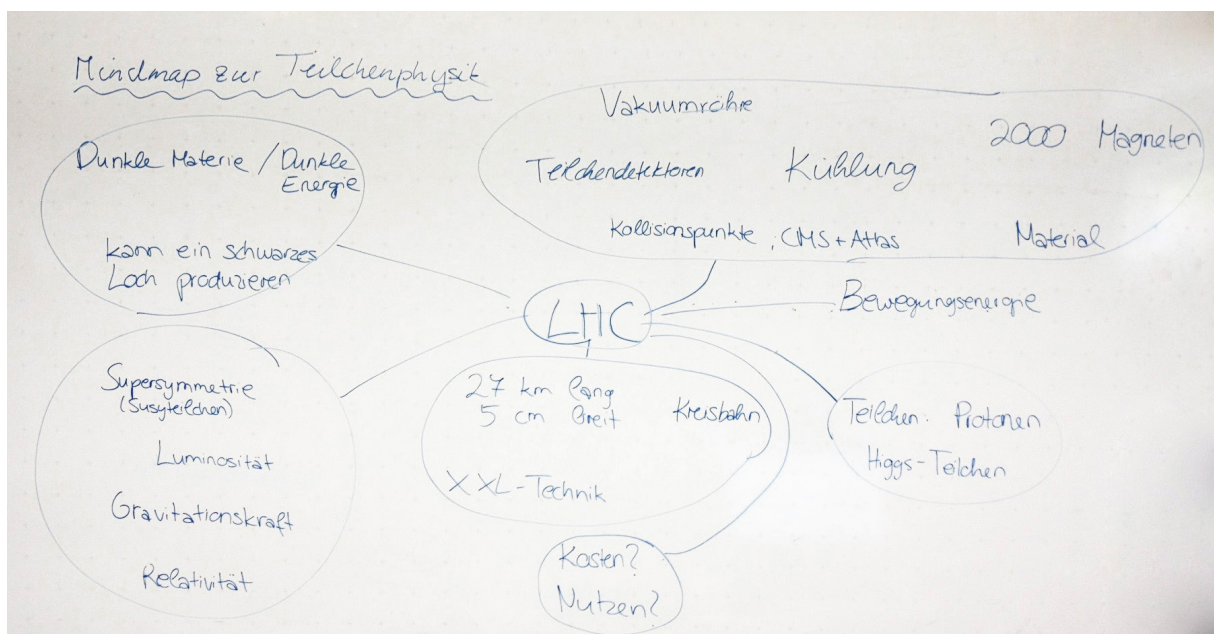 Mindmap zur Teilchenphysik
Dunkle Materie / Dunkle
Energie
kann ein schwarzes
Loch produzieren
Vakuumröhre
2000 Magneten
Teilchendetektoren Kühlung
Kollisionspunkte, CMS + Atlas Material
LHC
Bewegungsenergie
Supersymmetrie
(Susyteilchen)
Luminosität
Gravitationskraft
Relativität
27 km lang
5 cm breit Kreisbahn
XXL-Technik
Teilchen: Protonen
Higgs-Teilchen
Kosten?
Nutzen?